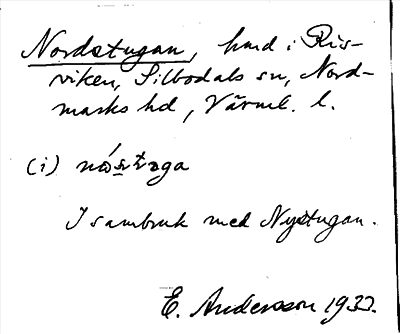 Nordstugan, hmd i Ris-
viken, Silbodals sn, Nord-
marks hd, Värml. l.
(i) 
I sambruk med Nystugan.
E. Andersson 1933.